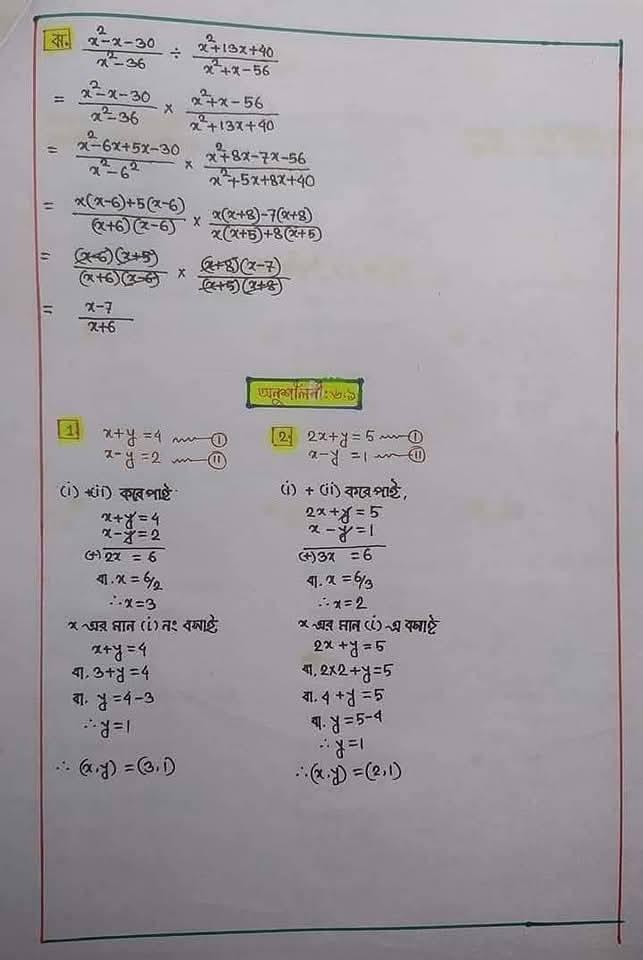 ঝ. (x²-x-30)/(x²-36) ÷ (x²+13x+40)/(x²+x-56)
= (x²-x-30)/(x²-36) × (x²+x-56)/(x²+13x+40)
= (x²-6x+5x-30)/(x²-6²) × (x²+8x-7x-56)/(x²+5x+8x+40)
= (x(x-6)+5(x-6))/((x+6)(x-6)) × (x(x+8)-7(x+8))/(x(x+5)+8(x+5))
= ((x-6)(x+5))/((x+6)(x-6)) × ((x+8)(x-7))/((x+5)(x+8))
= (x-7)/(x+6)
অনুশীলনী: ৬.১
1. x+y=4 (i)
x-y=2 (ii)
(i) + (ii) করে পাই
x+y=4
x-y=2
(+) 2x = 6
বা. x = 6/2
∴ x=3
x এর মান (i) নং বসাই
x+y=4
বা. 3+y=4
বা. y=4-3
∴ y=1
∴ (x,y) = (3,1)
2. 2x+y=5 (i)
x-y=1 (ii)
(i) + (ii) করে পাই,
2x+y=5
x-y=1
(+) 3x =6
বা. x=6/3
∴ x=2
x এর মান (i) এ বসাই
2x+y=5
বা. 2×2+y=5
বা. 4+y=5
বা. y=5-4
∴ y=1
∴ (x,y) =(2,1)